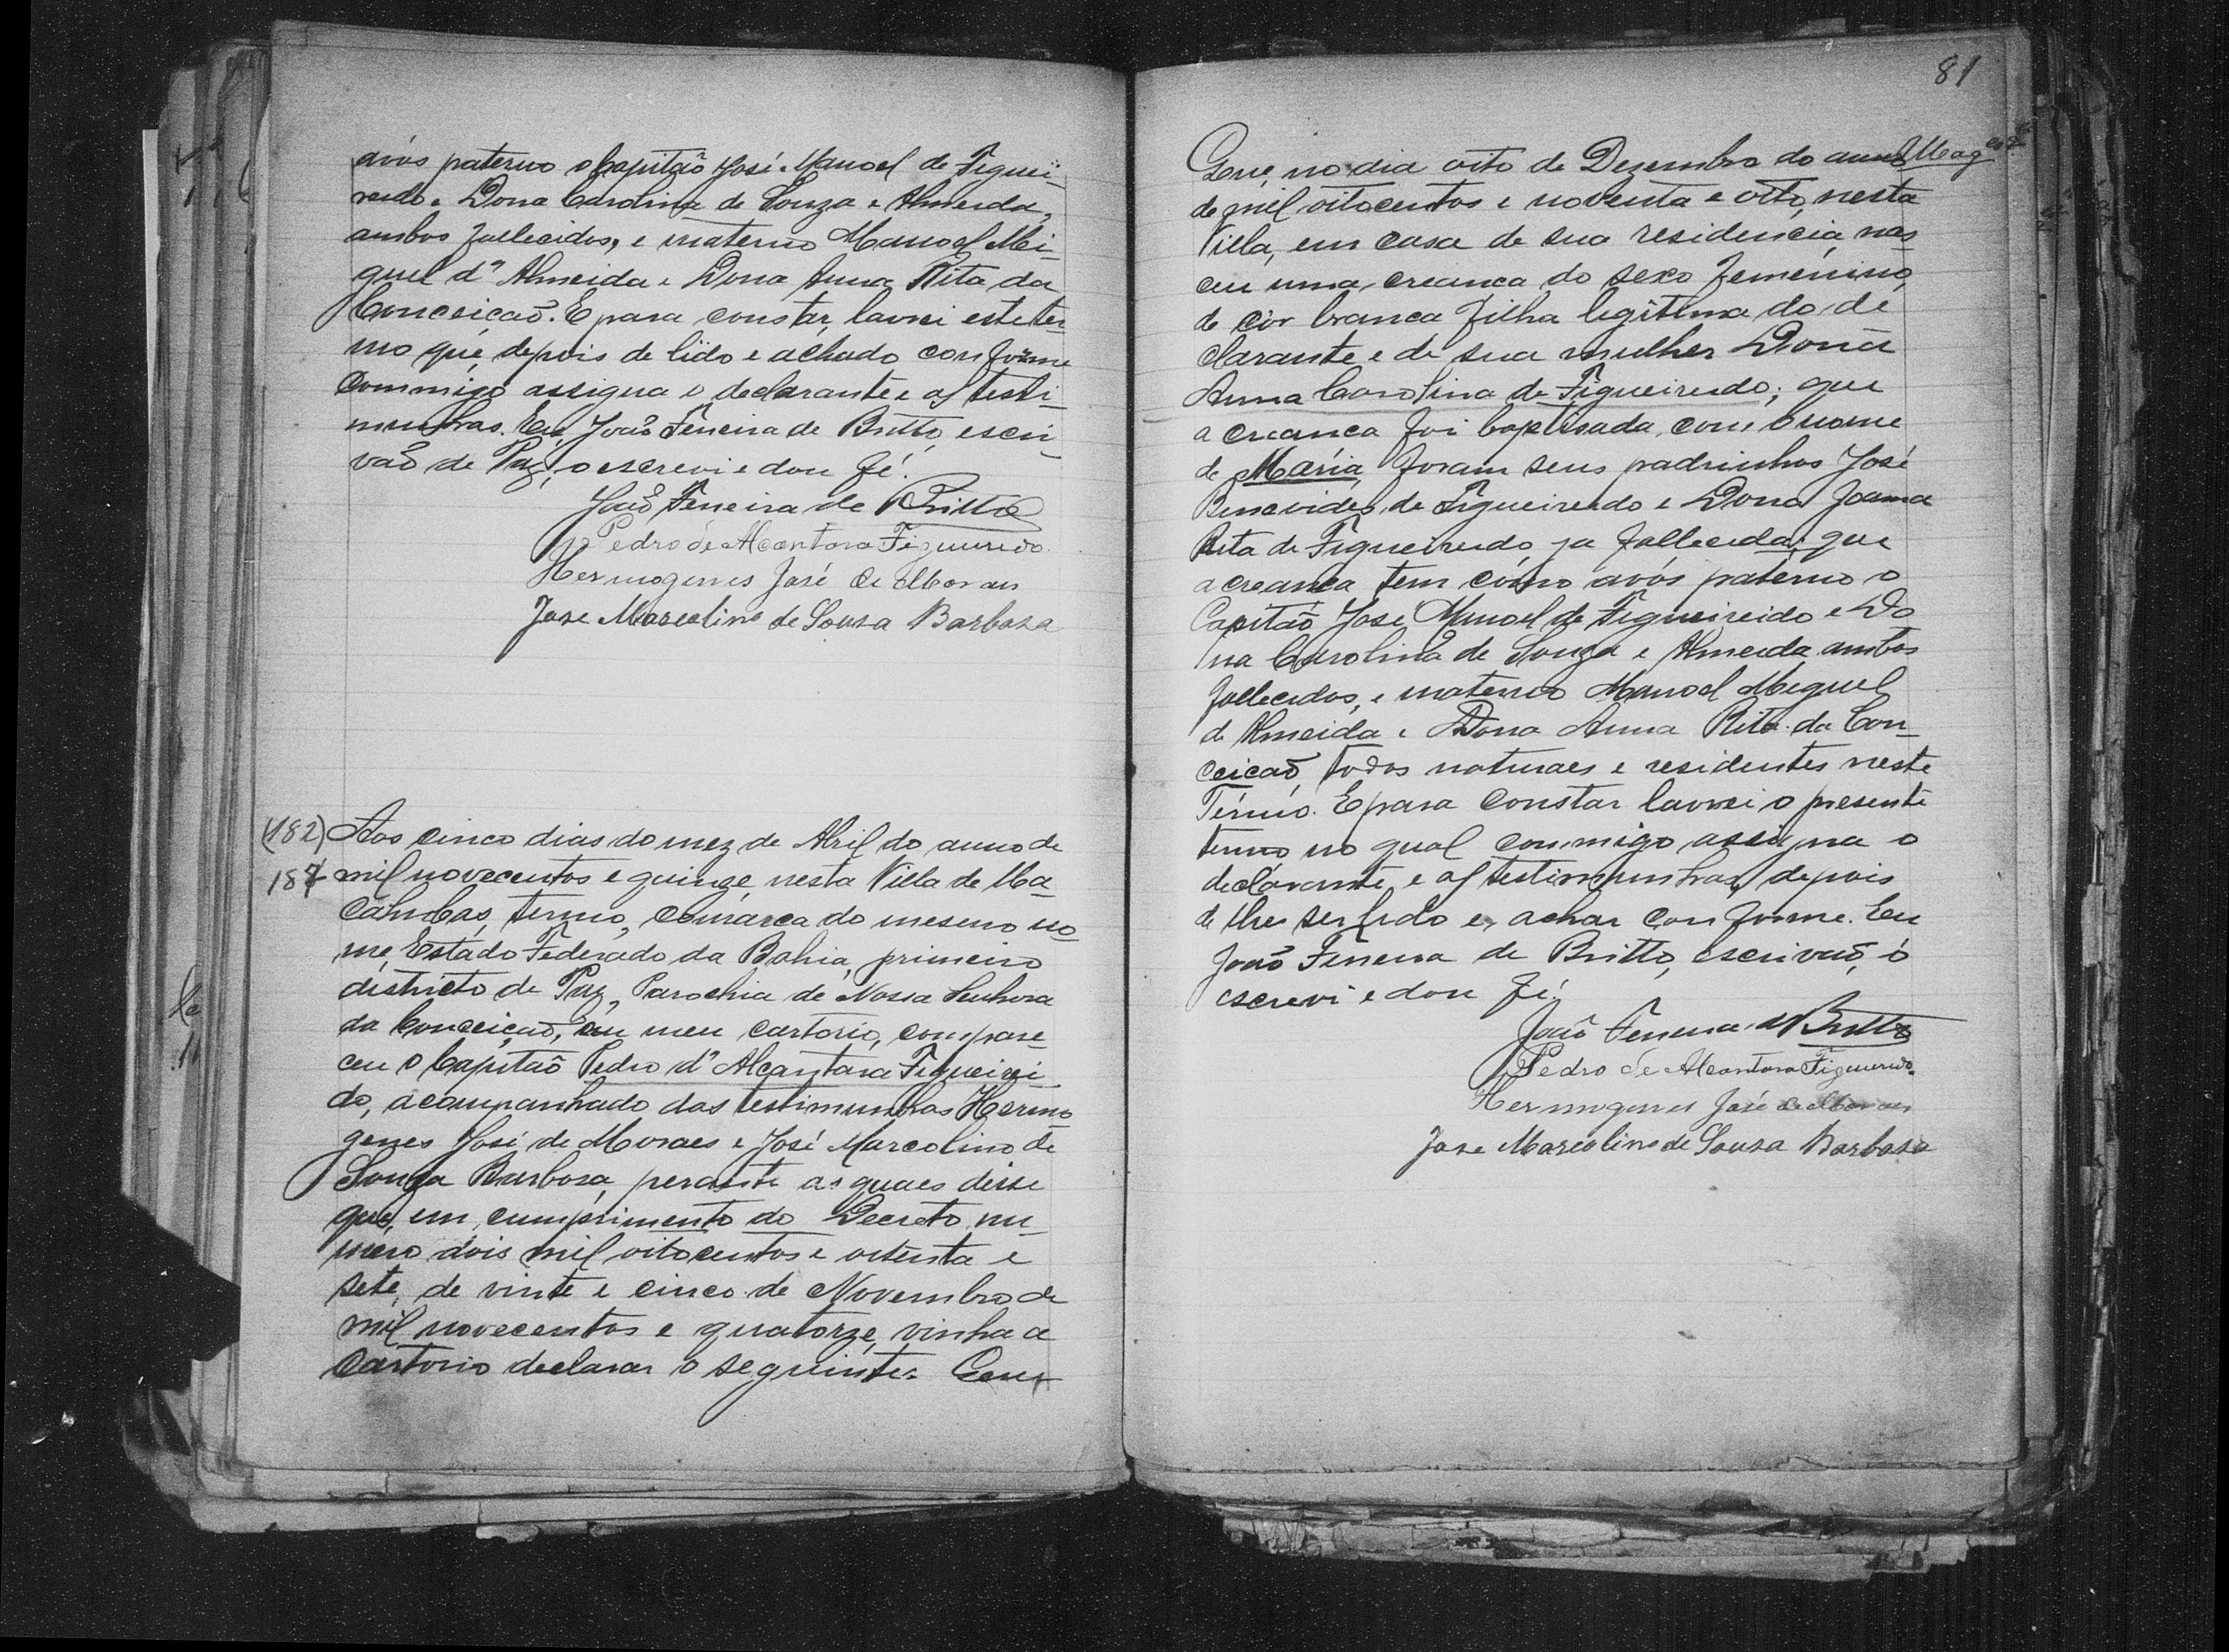 avós paterno o Capitão José Manoel de Figuei-
redo e Dona Carolina de Souza e Almeida,
ambos fallecidos, e materno Manoel Mi-
guel d'Almeida e Dona Anna Rita da
Conceição. E para constar, lavrei este ter-
mo que, depois de lido e achado conforme
commigo assigna o declarante e as testi-
munhas. Eu, João Ferreira de Britto, escri-
vão de Paz, o escrevi e dou fé.
João Ferreira de Britto
Pedro de Alcantara Figueiredo
Hermogenes José de Moraes
Jose Marcolino de Sousa Barbosa
(182) Aos cinco dias do mez de Abril do anno de
187 mil novecentos e quinze, nesta Villa de Ma
cahubas, termo, comarca do mesmo no-
me, Estado Federado da Bahia, primeiro
districto de Paz, Parochia de Nossa Senhora
da Conceição, em meu cartorio, compare-
ceu o Capitão Pedro d'Alcantara Figueirei-
do, acompanhado das testimunhas Hermo-
genes José de Moraes e José Marcolino de
Souza Barbosa, perante as quaes disse
que, em cumprimento do Decreto nu-
mero dois mil oitocentos e oitenta e
sete, de vinte e cinco de Novembro de
mil novecentos e quatorze, vinha a
Cartorio declarar o seguinte: Que
81
Que, no dia oito de Dezembro do anno
de mil oitocentos e noventa e oito, nesta
Villa, em casa de sua residencia, nas
ceu uma creança do sexo femenino,
de côr branca filha legitima do de
clarante e de sua mulher Dona
Anna Carolina de Figueiredo; que
a creança foi baptisada com o nome
de Maria, foram seus padrinhos José
Benevides de Figueiredo e Dona Joanna
Rita de Figueiredo, ja fallecida; que
a creança tem como avós paterno o
Capitão Jose Manoel de Figueireido e Do
na Carolina de Souza e Almeida ambos
fallecidos, e materno Manoel Miguel
de Almeida e Dona Anna Rita da Con-
ceicão, todos naturaes e residentes neste
Termo. E para constar lavrei o presente
termo no qual commigo assigna o
declarante e as testimunhas, depois
de lhe ser lido e achar conforme. Eu
João Ferreira de Britto, escrivão, o
escrevi e dou fé.
João Ferreira de Britto
Pedro de Alcantara Figueiredo
Hermogenes José de Moraes
Jose Marcolino de Sousa Barbosa